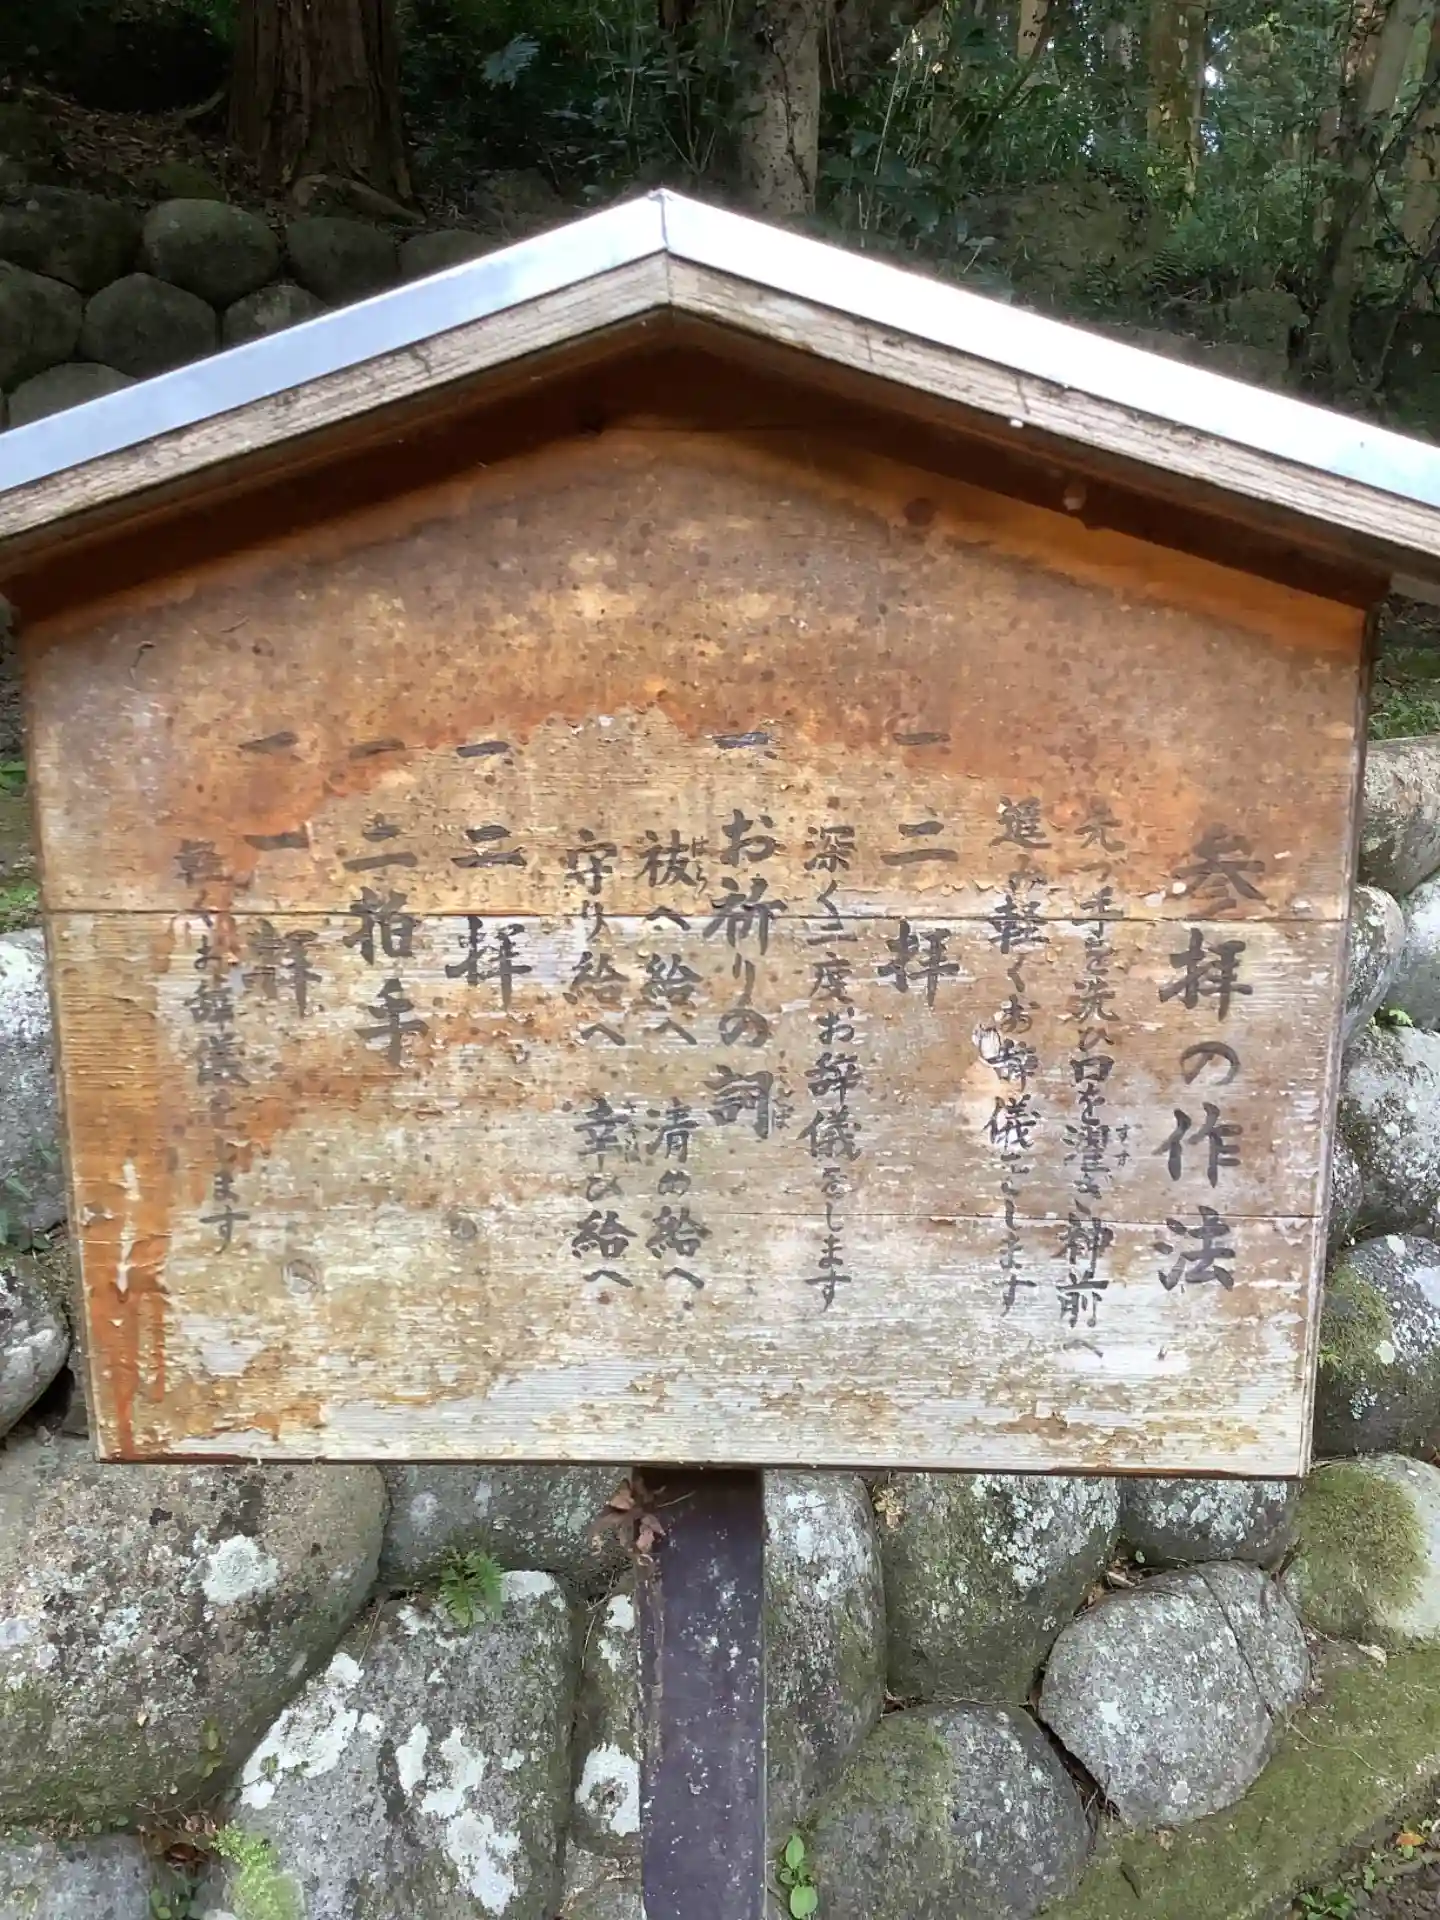 参拝の作法
先づ手を洗ひ口を濯ぎ神前へ
進み軽くお辞儀をします
一 二拝
深く二度お辞儀をします
一 お祈りの詞
祓へ給へ 清め給へ
守り給へ 幸ひ給へ
一 二拝
一 二拍手
一 一拝
軽くお辞儀をします